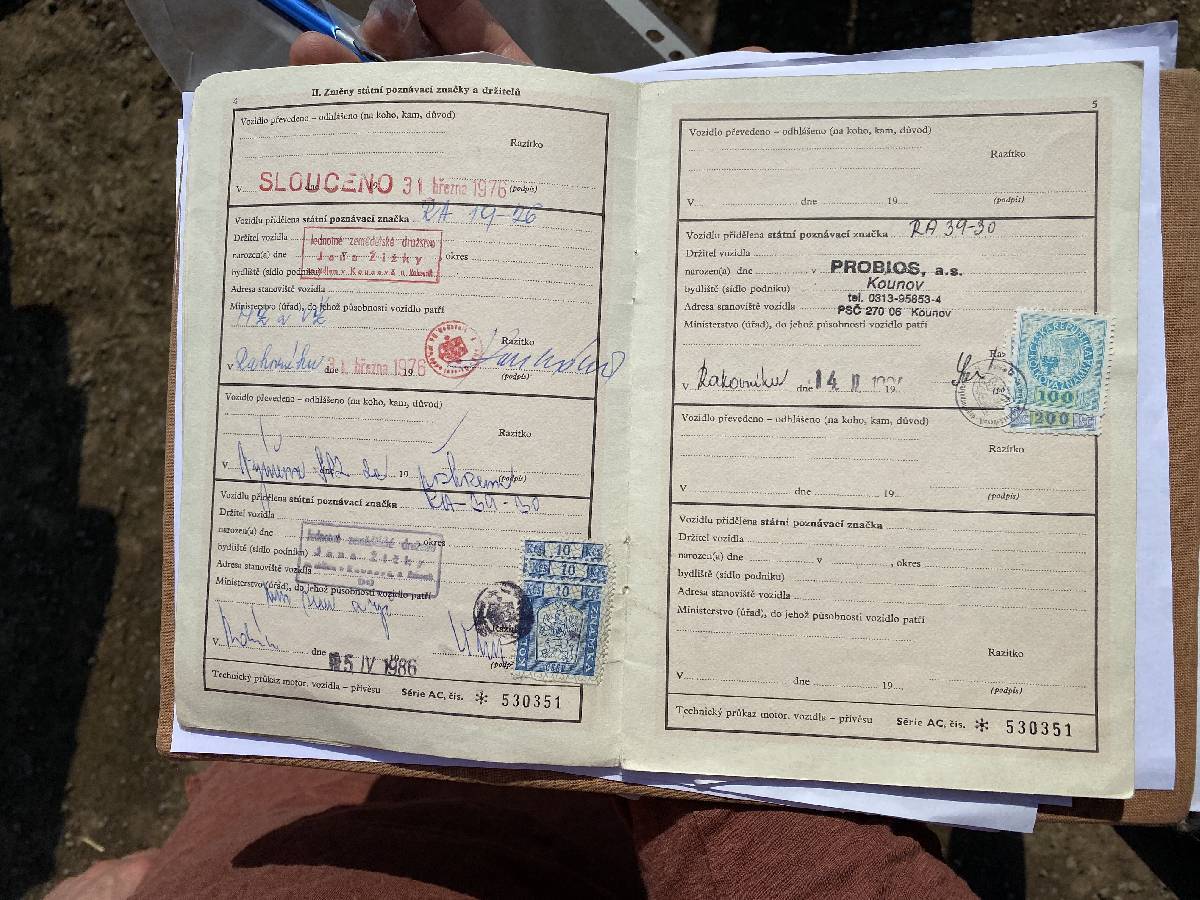 4
II. Změny státní poznávací značky a držitelů
Vozidlo převedeno – odhlášeno (na koho, kam, důvod)
Razítko
V SLOUČENO dne 31 března 1976 (podpis)
Vozidlu přidělena státní poznávací značka RA 19-26
Držitel vozidla Jednotné zemědělské družstvo
narozen(a) dne Jana Žižky okres
bydliště (sídlo podniku)
Adresa stanoviště vozidla
Ministerstvo (úřad), do jehož působnosti vozidlo patří
MZ a VŽ
Razítko
v Rakovníku dne 31. března 1976 19
(podpis)
Vozidlo převedeno – odhlášeno (na koho, kam, důvod)
Razítko
V Výměna dne 19 (podpis)
Vozidlu přidělena státní poznávací značka RA-39-30
Držitel vozidla Jednotné zemědělské družstvo
narozen(a) dne Jana Žižky okres
bydliště (sídlo podniku)
Adresa stanoviště vozidla
Ministerstvo (úřad), do jehož působnosti vozidlo patří
V dne 5 IV 1986
(podp
Kčs 10 Kčs
Kčs 10 Kčs
Kčs 10 Kčs
KOL ZNÁMKA
Technický průkaz motor. vozidla – přívěsu Série AC, čís. * 530351
5
Vozidlo převedeno – odhlášeno (na koho, kam, důvod)
Razítko
V dne 19 (podpis)
Vozidlu přidělena státní poznávací značka RA 39-30
Držitel vozidla
narozen(a) dne v PROBIOS, a.s.
bydliště (sídlo podniku) Kounov
tel. 0313-95853-4
Adresa stanoviště vozidla PSČ 270 06 Kounov
Ministerstvo (úřad), do jehož působnosti vozidlo patří
Raz
v Rakovníku dne 14 II 19
ČESKÁ REPUBLIKA
KOLKOVÁ ZNÁMKA
100
200 Kč
Vozidlo převedeno – odhlášeno (na koho, kam, důvod)
Razítko
V dne 19 (podpis)
Vozidlu přidělena státní poznávací značka
Držitel vozidla
narozen(a) dne v , okres
bydliště (sídlo podniku)
Adresa stanoviště vozidla
Ministerstvo (úřad), do jehož působnosti vozidlo patří
Razítko
V dne 19 (podpis)
Technický průkaz motor. vozidla – přívěsu Série AC, čís. * 530351